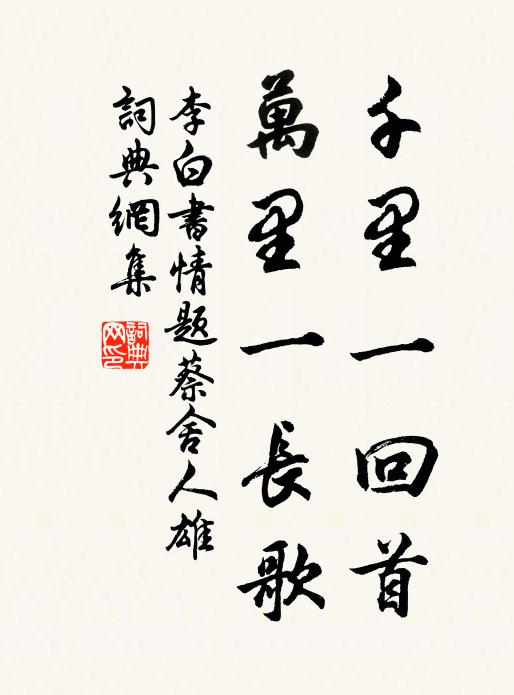 千里一回首
萬里一長歌
李白書情題蔡舍人雄
詞典網集
詞典網印